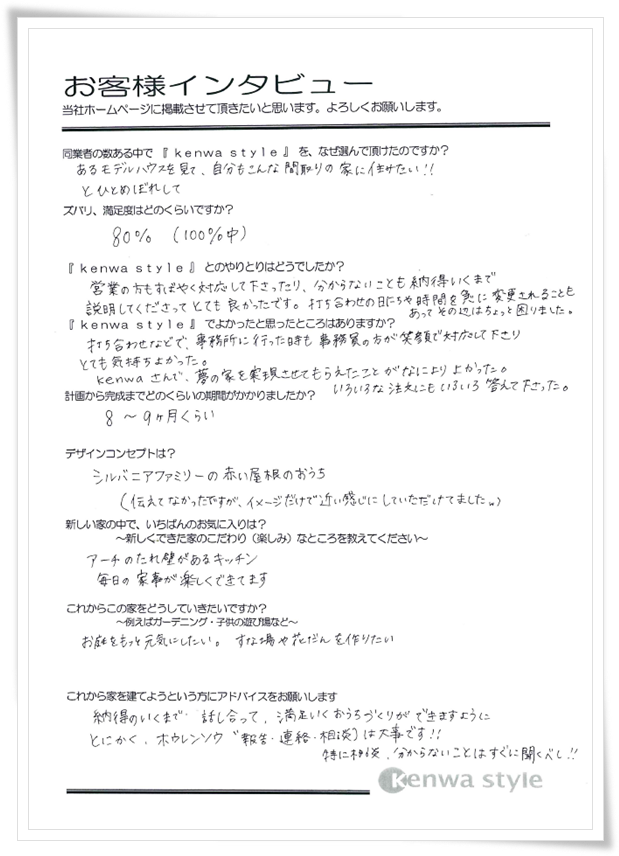 お客様インタビュー
当社ホームページに掲載させて頂きたいと思います。よろしくお願いします。
同業者の数ある中で 『 kenwa style 』 を、なぜ選んで頂けたのですか?
あるモデルハウスを見て、自分もこんな間取りの家に住みたい!!
とひとめぼれして
ズバリ、満足度はどのくらいですか?
80% (100%中)
『 kenwa style 』 とのやりとりはどうでしたか?
営業の方もすばやく対応して下さったり、分からないことも納得いくまで
説明してくださってとても良かったです。打ち合わせの日にちや時間を急に変更されることも
あってその辺はちょっと困りました。
『 kenwa style 』 でよかったと思ったところはありますか?
打ち合わせなどで、事務所に行った時も事務員の方が笑顔で対応して下さり
とても気持ちよかった。
kenwaさんで、夢の家を実現させてもらえたことがなによりよかった。
いろいろな注文にもいろいろ答えて下さった。
計画から完成までどのくらいの期間がかかりましたか?
8 ～ 9ヶ月くらい
デザインコンセプトは?
シルバニアファミリーの赤い屋根のおうち
(伝えてなかったですが、イメージだけで近い感じにしていただけてました。)
新しい家の中で、いちばんのお気に入りは?
～新しくできた家のこだわり(楽しみ)なところを教えてください～
アーチのたれ壁があるキッチン
毎日の家事が楽しくできてます
これからこの家をどうしていきたいですか?
～例えばガーデニング・子供の遊び場など～
お庭をもっと元気にしたい。すな場や花だんを作りたい
これから家を建てようという方にアドバイスをお願いします
納得のいくまで 話し合って、満足いくおうちづくりができますように
とにかく、ホウレンソウ(報告・連絡・相談)は大事です!!
特に相談、分からないことはすぐに聞くべし!!
kenwa style